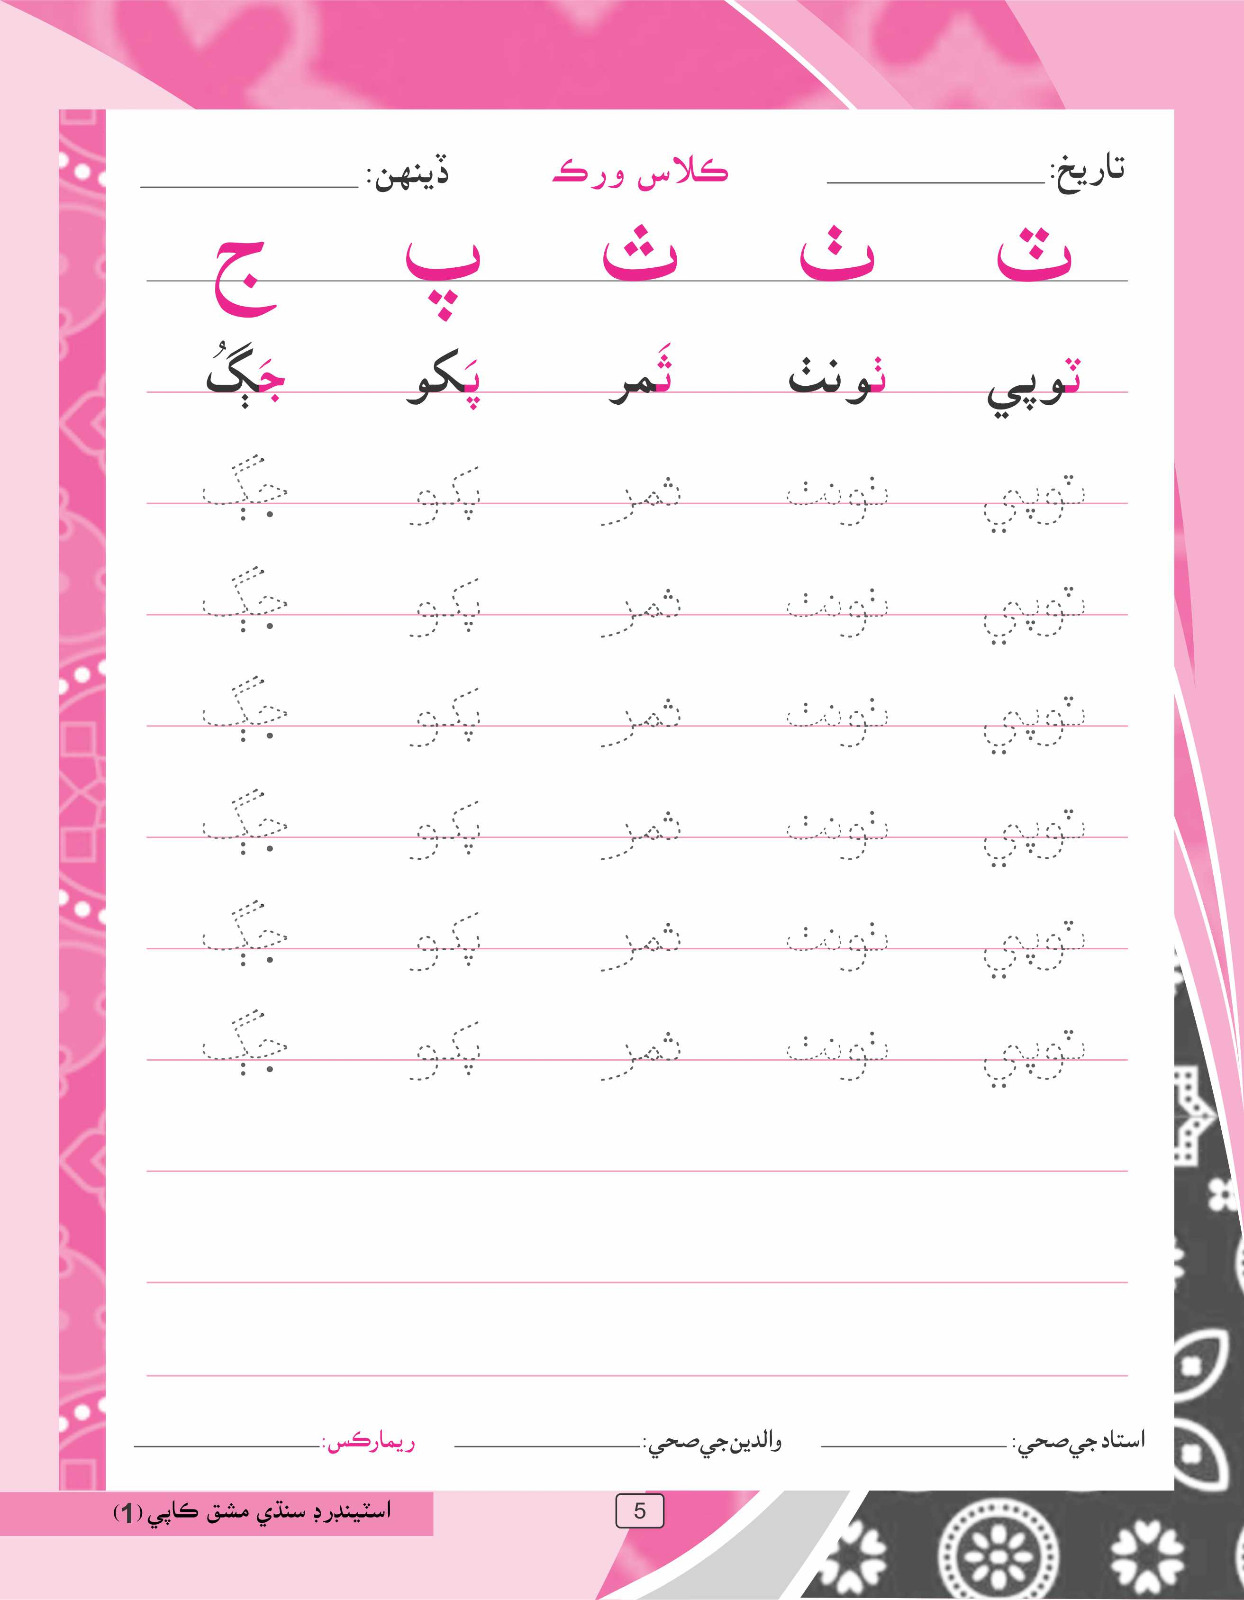 تاريخ: ڪلاس ورڪ ڏينهن:
ٽ ٺ ث پ ج
ٽوپي ٺونٺ ثَمر پَکو جَڳُ
ٽوپي ٺونٺ ثمر پکو جڳ
ٽوپي ٺونٺ ثمر پکو جڳ
ٽوپي ٺونٺ ثمر پکو جڳ
ٽوپي ٺونٺ ثمر پکو جڳ
ٽوپي ٺونٺ ثمر پکو جڳ
ٽوپي ٺونٺ ثمر پکو جڳ
استاد جي صحي: والدين جي صحي: ريمارڪس:
5 اسٽينڊرڊ سنڌي مشق ڪاپي (1)